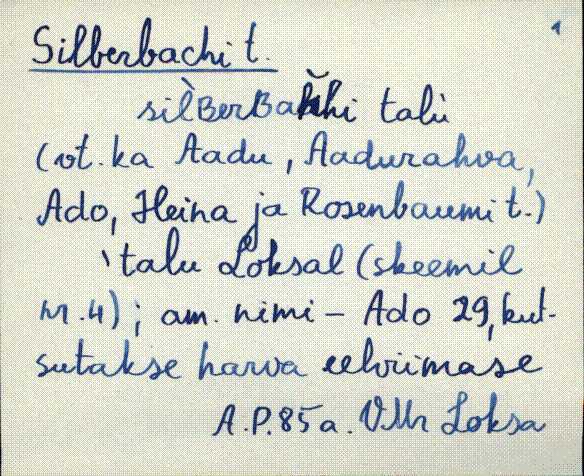 Silberbachi t.
sil̀BerBahhi talù
(vt. ka Aadu, Aadurahva,
Ado, Heina ja Rosenbaumi t.)
`talu Loksal (skeemil
nr. 4); am. nimi – Ado 29, kut-
sutakse harva eelviimase
A.P. 85 a. VMr Loksa